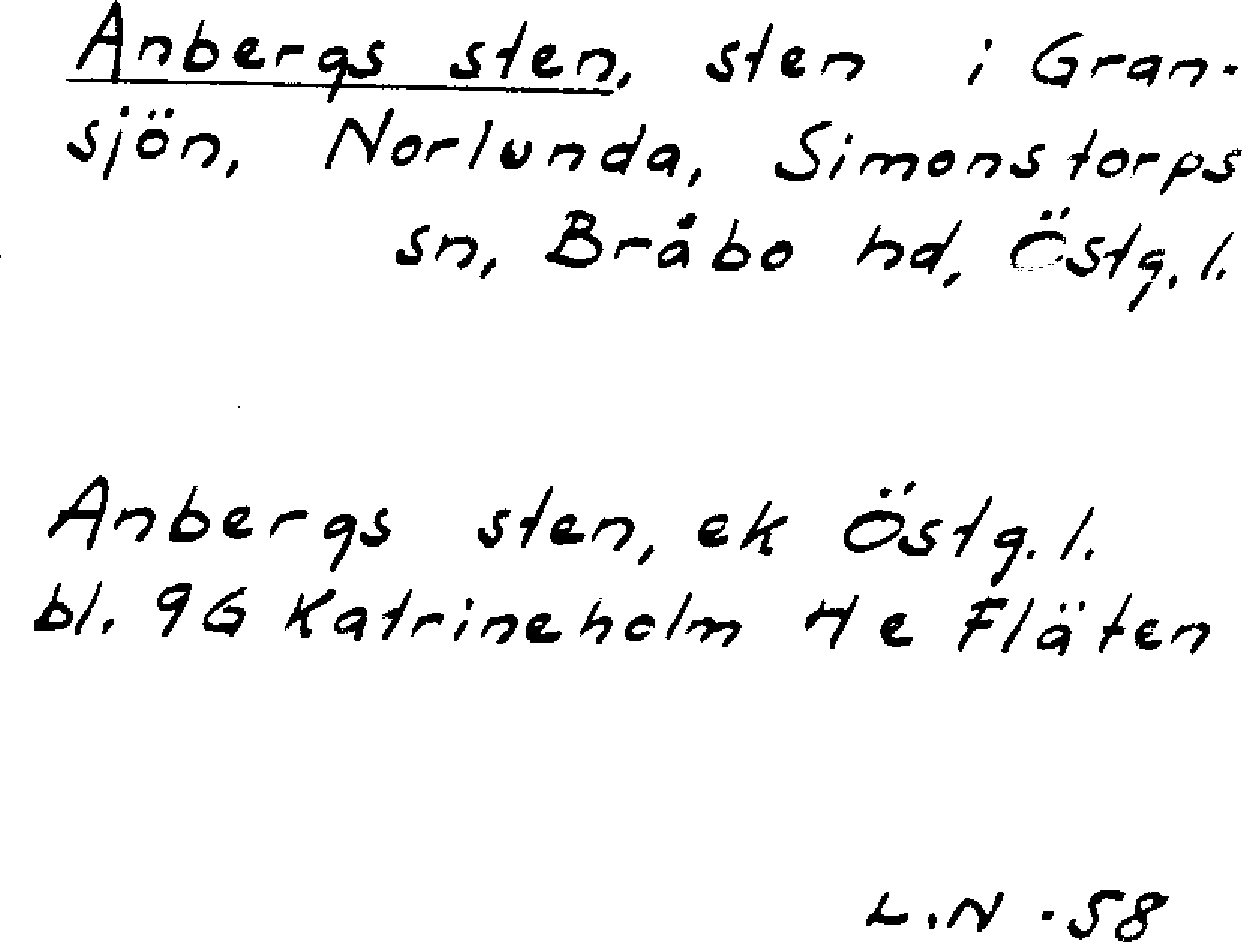 Anbergs sten, sten i Gran-
sjön, Norlunda, Simonstorps
sn, Bråbo hd, Östg. l.
Anbergs sten, ek Östg. l.
bl. 9G Katrineholm 4 e Fläten
L.N -58